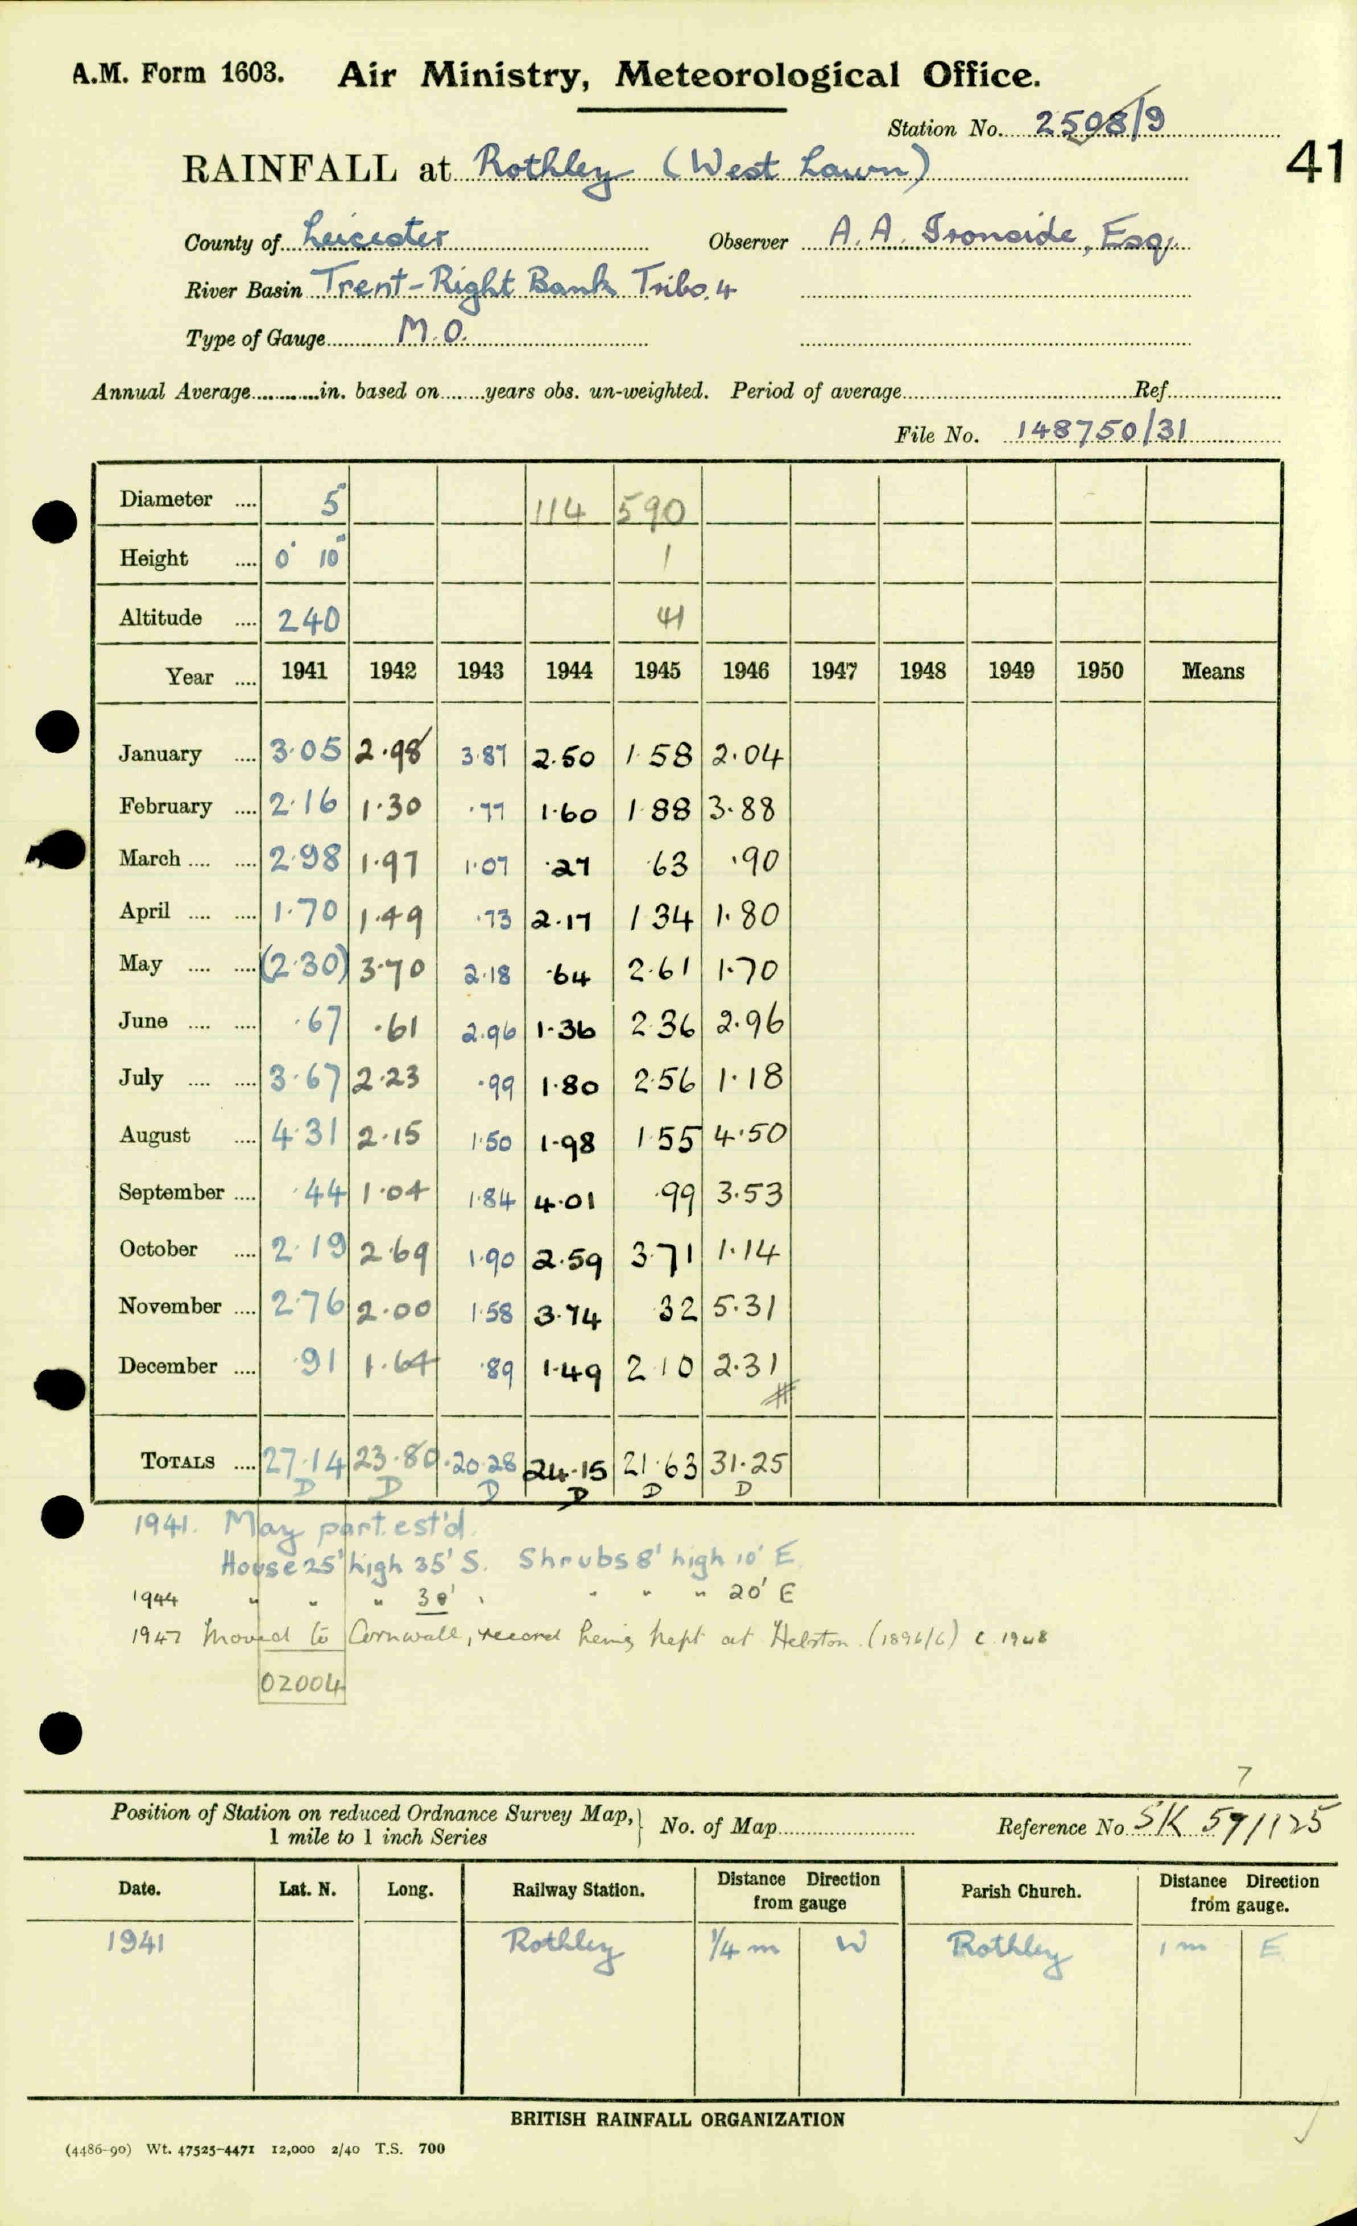 A.M. Form 1603. Air Ministry, Meteorological Office.
Station No. 2508/9
41
RAINFALL at Rothley (West Lawn)
County of Leicester Observer A. A. Ironside, Esq.
River Basin Trent-Right Bank Tribs. 4
Type of Gauge M.O.
Annual Average in. based on years obs. un-weighted. Period of average Ref.
File No. 148750/31
Diameter 5" 114 590
Height 0' 10" 1
Altitude 240 41
Year 1941 1942 1943 1944 1945 1946 1947 1948 1949 1950 Means
January 3.05 2.98 3.87 2.50 1.58 2.04
February 2.16 1.30 .77 1.60 1.88 3.88
March 2.98 1.97 1.07 .27 .63 .90
April 1.70 1.49 .73 2.17 1.34 1.80
May (2.30) 3.70 2.18 .64 2.61 1.70
June .67 .61 2.96 1.36 2.36 2.96
July 3.67 2.23 .99 1.80 2.56 1.18
August 4.31 2.15 1.50 1.98 1.55 4.50
September .44 1.04 1.84 4.01 .99 3.53
October 2.19 2.69 1.90 2.59 3.71 1.14
November 2.76 2.00 1.58 3.74 .32 5.31
December .91 1.64 .89 1.49 2.10 2.31
TOTALS 27.14 23.80 20.28 24.15 21.63 31.25
D D D D D D
1941. May part. est'd.
House 25' high 35' S. Shrubs 8' high 10' E.
1944 " " " 30' " " " " 20' E
1947 Moved to Cornwall, record being kept at Helston. (1896/6) c. 1948
02004
7
Position of Station on reduced Ordnance Survey Map, 1 mile to 1 inch Series } No. of Map Reference No. SK 59/125
Date. Lat. N. Long. Railway Station. Distance Direction from gauge Parish Church. Distance Direction from gauge.
1941 Rothley 1/4 m W Rothley 1 m E
BRITISH RAINFALL ORGANIZATION
(4486-90) Wt. 47525-4471 12,000 2/40 T.S. 700